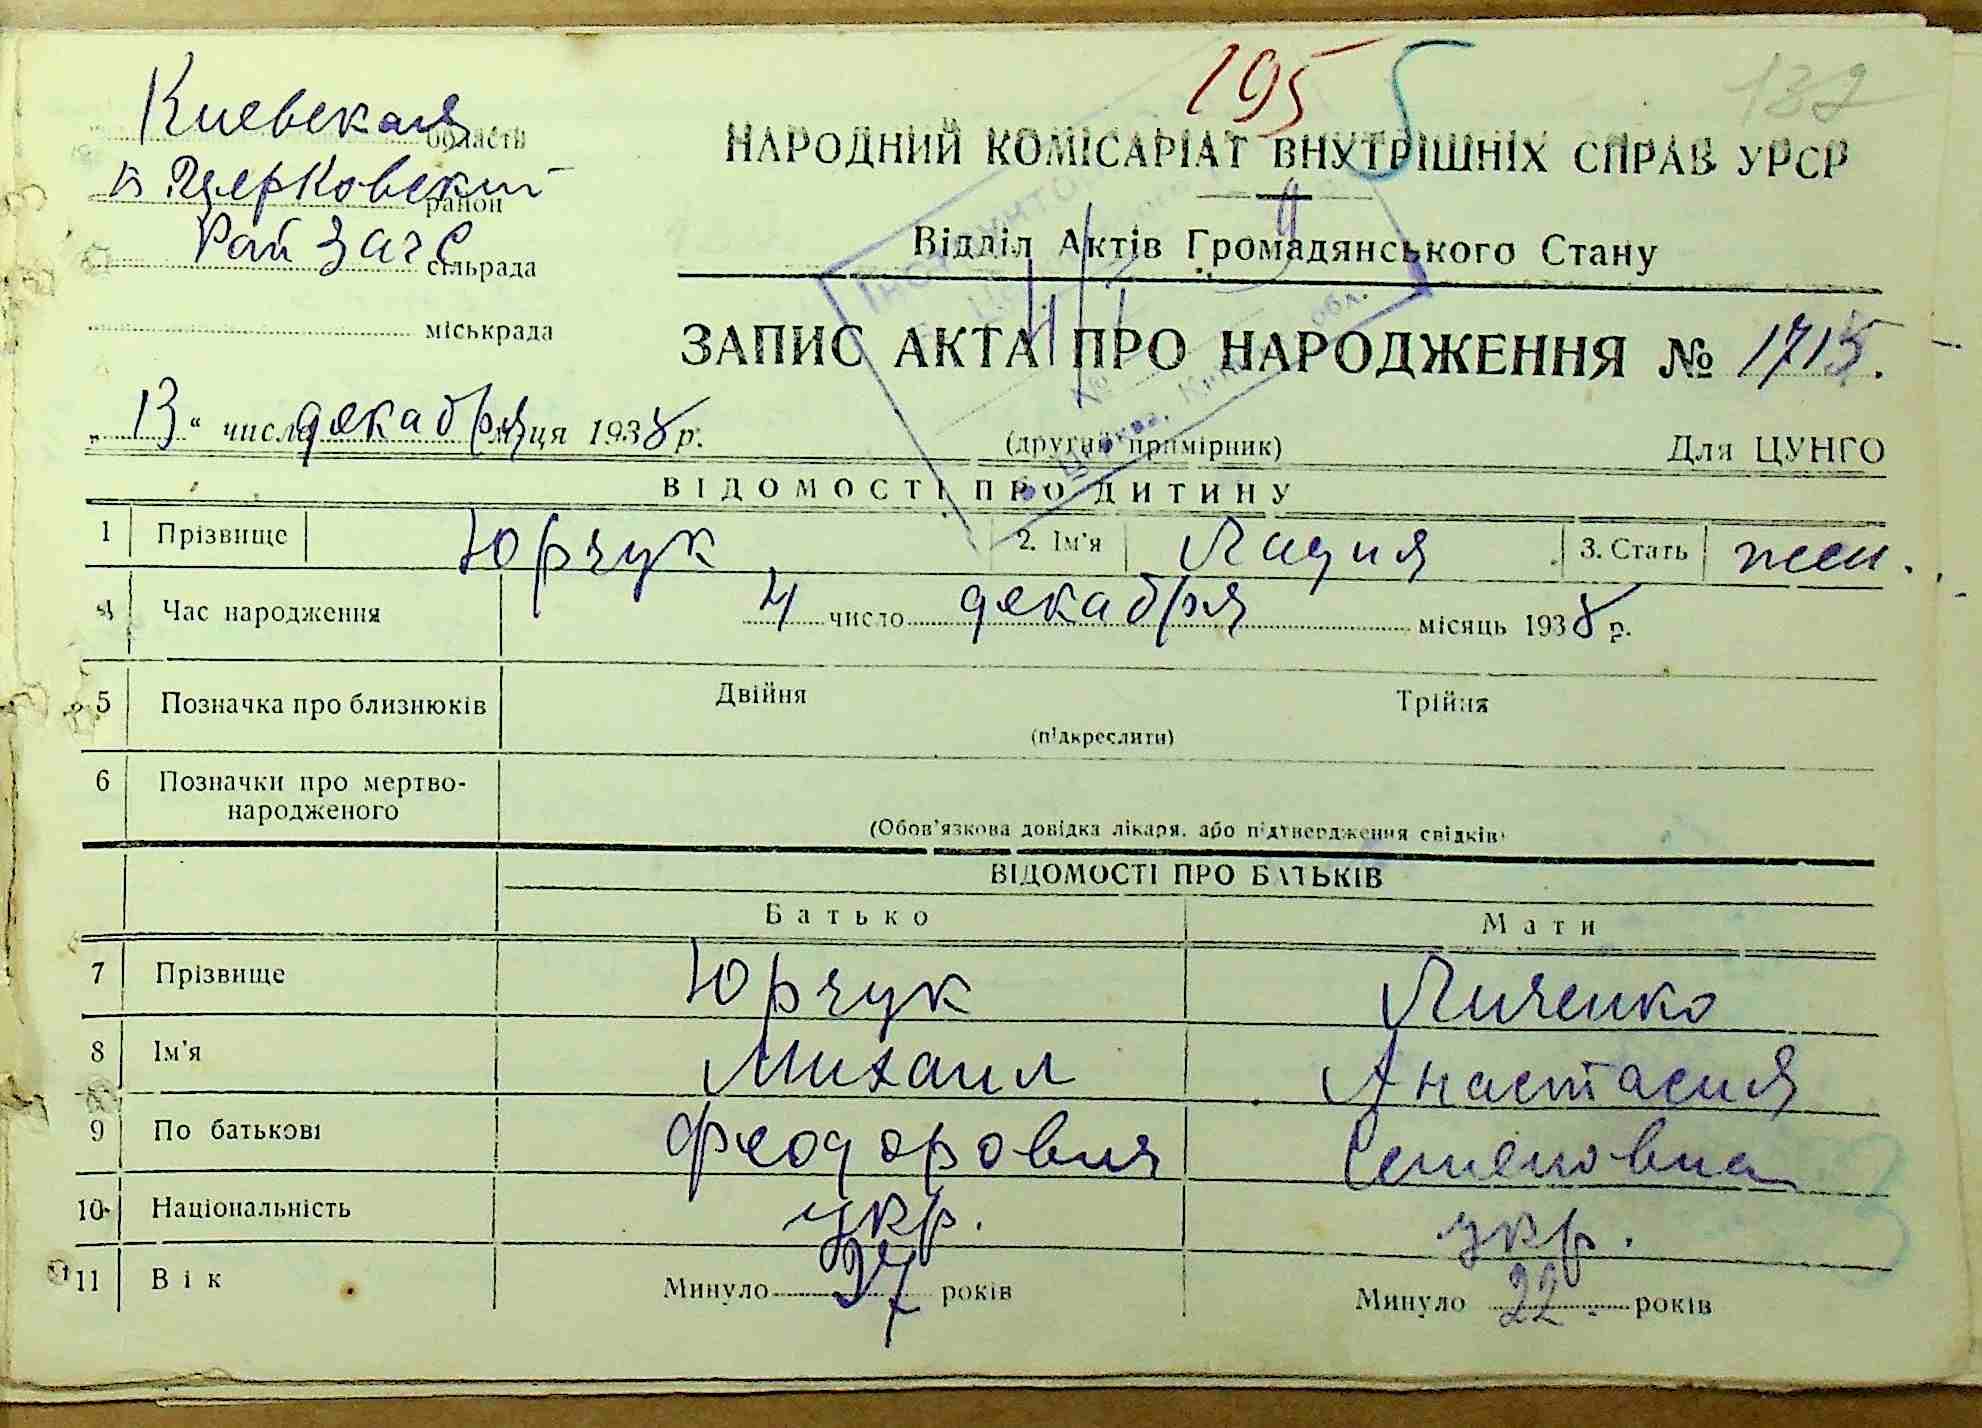 195 5 132
Киевская
область
Б Церковский
район
Рай Загс
сільрада
міськрада
НАРОДНИЙ КОМІСАРІАТ ВНУТРІШНІХ СПРАВ УРСР
Відділ Актів Громадянського Стану
ЗАПИС АКТА ПРО НАРОДЖЕННЯ № 1715.
„13“ числа декабря м-ця 1938 р.
(другий примірник)
Для ЦУНГО
ВІДОМОСТІ ПРО ДИТИНУ
1 Прізвище Юрчук 2. Ім'я Лидия 3. Стать жен.
4 Час народження 4 число декабря місяць 1938 р.
5 Позначка про близнюків Двійня Трійня
(підкреслити)
6 Позначки про мертво-
народженого
(Обов'язкова довідка лікаря, або підтвердження свідків)
ВІДОМОСТІ ПРО БАТЬКІВ
Батько Мати
7 Прізвище Юрчук Личенко
8 Ім'я Михаил Анастасия
9 По батькові Феодорович Семеновна
10 Національність укр. укр.
11 Вік Минуло 27 років Минуло 22 років